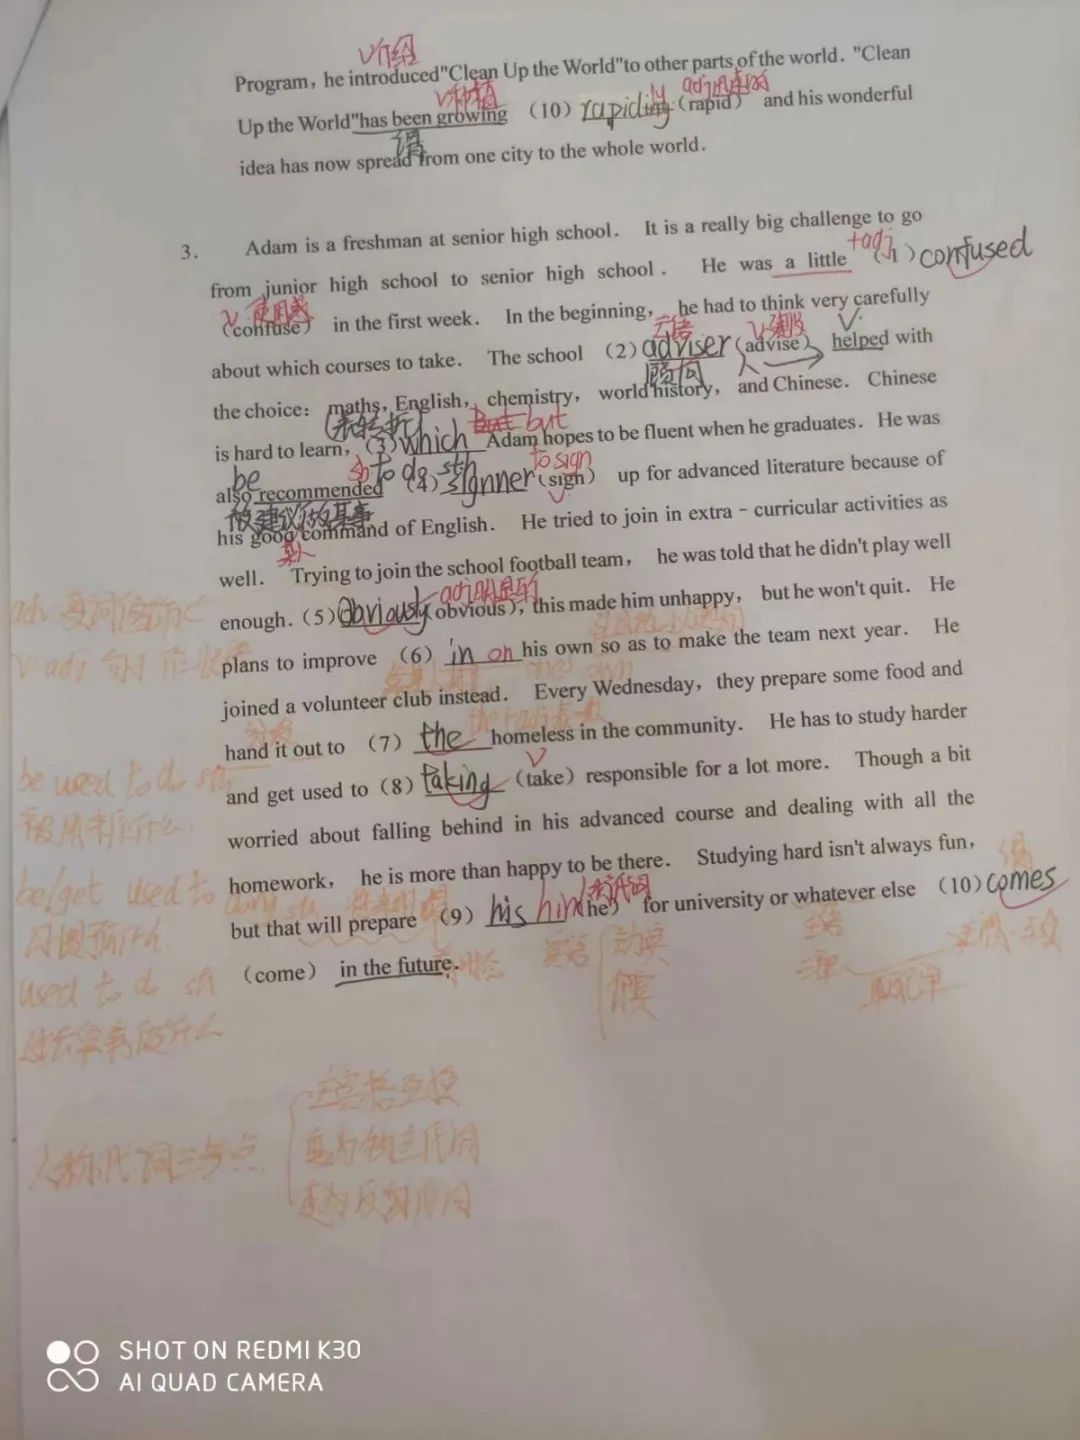 v介绍
Program, he introduced"Clean Up the World"to other parts of the world. "Clean
v种植 ly adj迅速的
Up the World"has been growing (10) rapiding (rapid) and his wonderful
谓
idea has now spread from one city to the whole world.
3. Adam is a freshman at senior high school. It is a really big challenge to go
+adj
from junior high school to senior high school. He was a little (1) confused
v.使困惑
(confuse) in the first week. In the beginning, he had to think very carefully
主语 v.建议 V.
about which courses to take. The school (2) adviser (advise) helped with
顾问 人
the choice: maths, English, chemistry, world history, and Chinese. Chinese
(表转折) but but
is hard to learn, (3) which Adam hopes to be fluent when he graduates. He was
be sb to do sth to sign
also recommended (4) signner (sign) up for advanced literature because of
被建议做某事
his good command of English. He tried to join in extra-curricular activities as
well. Trying to join the school football team, he was told that he didn't play well
adj明显的
enough. (5) Obviously (obvious), this made him unhappy, but he won't quit. He
plans to improve (6) in on his own so as to make the team next year. He
joined a volunteer club instead. Every Wednesday, they prepare some food and
the+adj表
hand it out to (7) the homeless in the community. He has to study harder
be used to do sth
V
and get used to (8) taking (take) responsible for a lot more. Though a bit
被用来作什么
worried about falling behind in his advanced course and dealing with all the
be/get used to doing sth
homework, he is more than happy to be there. Studying hard isn't always fun,
but that will prepare (9) his him (he) for university or whatever else (10) comes
used to do sth
(come) in the future.
宾语 动宾
介宾
主谓一致
人称代词三考点
主宾格互换
变为物主代词
变为反身代词
SHOT ON REDMI K30
AI QUAD CAMERA